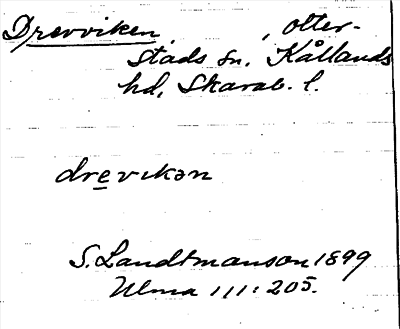 Drevviken, , Otter-
stads sn, Kållands
hd, Skarab. l.
drevikən
S. Landtmanson 1899
Ulma 111:205.